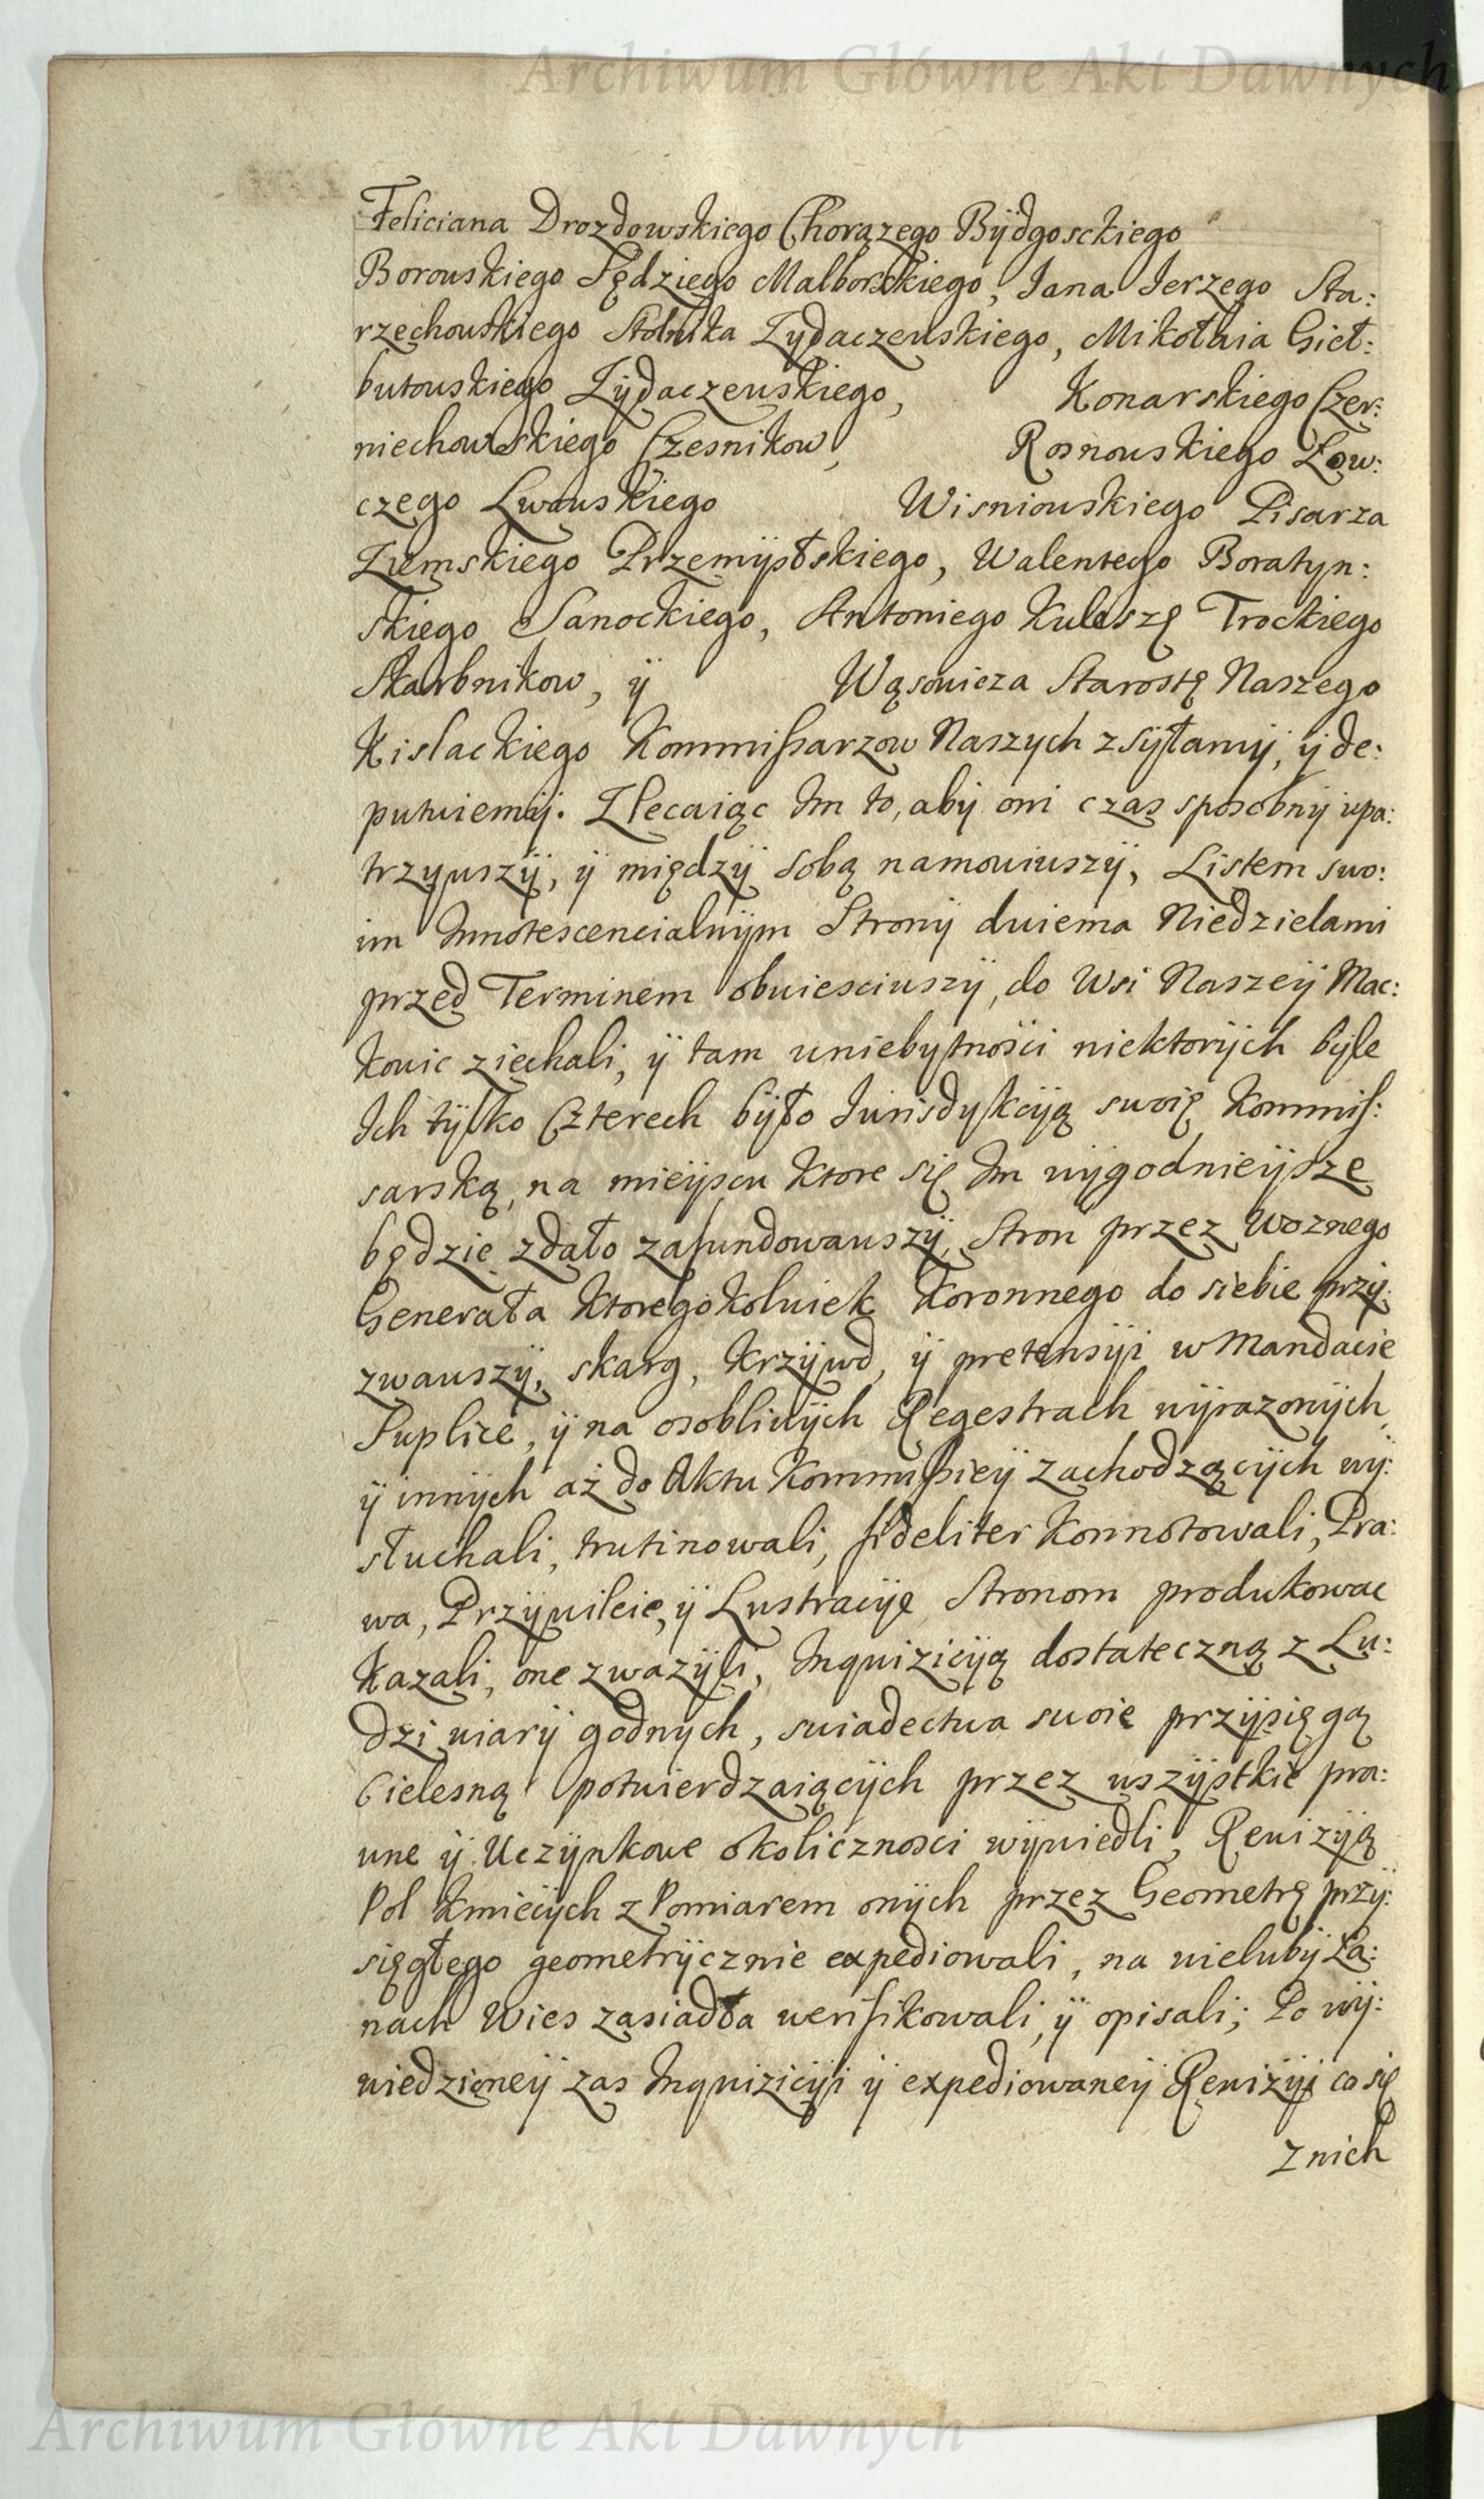 Archiwum Główne Akt Dawnych
Feliciana Drozdowskiego Chorązego Bÿdgosckiego
Borowskiego Sędziego Malborskiego, Jana Jerzego Sta:
rzechowskiego Stolnika Zydaczewskiego, Mikołaia Gieł:
butowskiego Zÿdaczewskiego, Konarskiego Czer:
niechowskiego Czesnikow, Rosnowskiego Łow:
czego Lwowskiego Wisniowskiego Pisarza
Ziemskiego Przemÿslskiego, Walentego Boratyn:
skiego Sanockiego, Antoniego Kuleszę Trockiego
Skarbnikow, ÿ Wąsowicza Starostę Naszego
Kislackiego Kommissarzow Naszych zsÿłamÿ, ÿ de:
putuiemÿ. Zlecaiąc Im to, abÿ oni czas sposobnÿ upa:
trzywszÿ, ÿ międzÿ sobą namowiwszÿ, Listem swo:
im Innotescencialnÿm Stronÿ dwiema Niedzielami
przed Terminem obwiesciwszÿ, do Wsi Naszeÿ Mac:
kowic ziechali, ÿ tam wniebytnosci niektorÿch bÿle
Ich tÿlko Czterech bÿło Iurisdykcÿą swoię Kommis:
sarską, na mieÿscu ktore się Im wÿgodnieÿsze
będzie zdało zafundowawszÿ, Stron przez Woznego
Generała ktoregokolwiek Koronnego do siebie przÿ:
zwawszÿ, skarg, krzÿwd, ÿ pretensÿi w Mandacie
Suplice, ÿ na osobliwÿch Regestrach wÿrazonÿch,
ÿ innÿch aż do Aktu Kommissieÿ zachodzącÿch wÿ:
słuchali, trutinowali, fideliter konnotowali, Pra:
wa, Przÿwileie, ÿ Lustracÿę Stronom produkowac
kazali, one zwazÿli, Inquizicÿą dostateczną z Lu:
dzi wiarÿ godnych, swiadectwa swoie przÿsięgą
Cielesną potwierdzaiącÿch przez wszÿstkie pra:
wne ÿ Uczÿnkowe okolicznosci wÿwiedli, Rewizÿą
Pol Kmiecÿch z Pomiarem onÿch przez Geometrę przÿ:
sięgłego geometrÿcznie expediowali, na wielubÿ Ła:
nach Wies zasiadła werifikowali, ÿ opisali; Po wÿ:
wiedzioneÿ zas Inquizicÿi ÿ expediowaneÿ Rewizÿi co się
z nich
Archiwum Główne Akt Dawnych